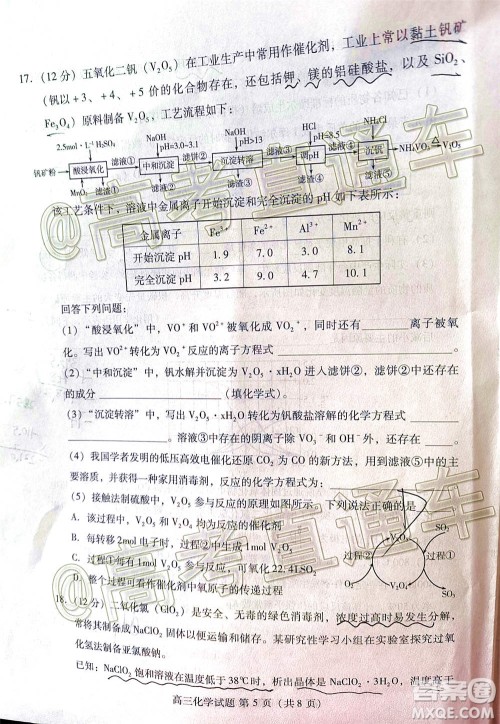 17. (12 分) 五氧化二钒 (V₂O₅) 在工业生产中常用作催化剂, 工业上常以黏土钒矿
(钒以 +3、+4、+5 价的化合物存在, 还包括钾、镁的铝硅酸盐, 以及 SiO₂、
Fe₃O₄) 原料制备 V₂O₅, 工艺流程如下:
2.5mol·L⁻¹H₂SO₄ NaOH NaOH HCl NH₄Cl
pH=3.0~3.1 pH>13 pH=8.5
钒矿粉 酸浸氧化 滤液① 中和沉淀 滤饼② 沉淀转溶 滤液③ 调pH 滤液④ 沉钒 NH₄VO₃ V₂O₅
MnO₂ 滤渣① 滤液② 滤渣③ 滤渣④ 滤液⑤
该工艺条件下, 溶液中金属离子开始沉淀和完全沉淀的 pH 如下表所示:
金属离子 Fe³⁺ Fe²⁺ Al³⁺ Mn²⁺
开始沉淀 pH 1.9 7.0 3.0 8.1
完全沉淀 pH 3.2 9.0 4.7 10.1
回答下列问题:
(1) “酸浸氧化”中, VO⁺ 和 VO²⁺ 被氧化成 VO₂⁺, 同时还有 ______ 离子被氧
化。写出 VO²⁺ 转化为 VO₂⁺ 反应的离子方程式 ______
(2) “中和沉淀”中, 钒水解并沉淀为 V₂O₅·xH₂O 进入滤饼②, 滤饼②中还存在
的成分 ______ (填化学式)。
(3) “沉淀转溶”中, 写出 V₂O₅·xH₂O 转化为钒酸盐溶解的化学方程式
______ 溶液③中存在的阴离子除 VO₃⁻ 和 OH⁻ 外, 还存在 ______。
(4) 我国学者发明的低压高效电催化还原 CO₂ 为 CO 的新方法, 用到滤液⑤中的主要成
分, 并获得一种家用消毒剂。写出该反应的化学方程式
(5) 接触法制硫酸中, V₂O₅ 参与反应的原理如图所示。下列说法正确的是
A. 该过程中, V₂O₅ 为参与反应的催化剂
B. 每转移 2mol 电子时, 过程②中生成 1mol V₂O₅
C. 与 SO₂ 反应时, 1mol V₂O₅ 可氧化 2mol SO₂
D. 整个过程可看作催化剂中氧原子的传递过程
过程① V₂O₅ SO₂ 过程② V₂O₄ SO₃
18. (12 分) 二氧化氯 (ClO₂) 是安全、无毒的绿色消毒剂, 浓度过高时易发生分解,
常将其制备成 NaClO₂ 固体以便于保存和运输。某研究性学习小组在实验室探究过氧
化氢法制备亚氯酸钠。
已知: NaClO₂ 饱和溶液在温度低于 38℃时, 析出晶体是 NaClO₂·3H₂O, 温度高于
高三化学试题 第 5 页 (共 8 页)